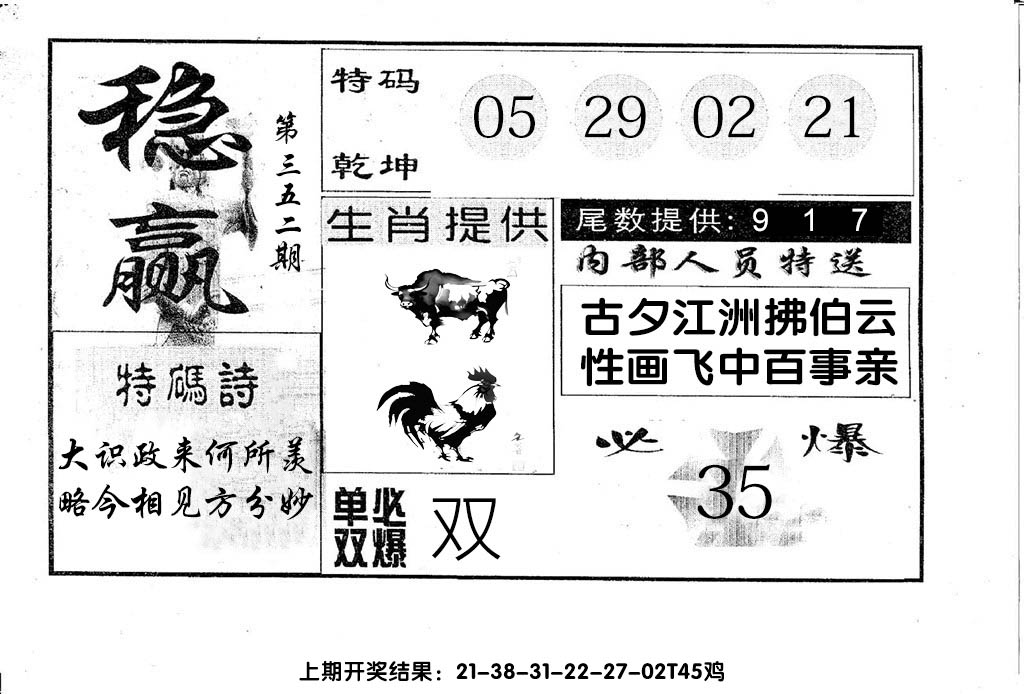 稳赢
第三五二期
特码诗
大识政来何所羡
略今相见方分妙
特码
乾坤
05 29 02 21
生肖提供
尾数提供: 9 1 7
内部人员特送
古夕江洲拂伯云
性画飞中百事亲
必爆
35
单双必爆
双
上期开奖结果：21-38-31-22-27-02T45鸡